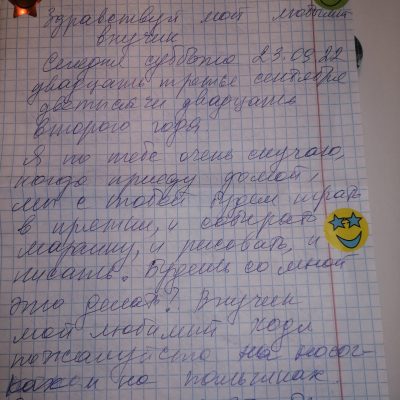 Здравствуй мой любимый
внучик
Сегодня суббота 23.09.22
двадцать третье сентября
две тысячи двадцать
второго года
Я по тебе очень скучаю,
когда приеду домой,
мы с тобой будем играть
в прятки, и собирать
марашку, и рисовать, и
писать. Будешь со мной
это делат? Внучик
мой любимий ходи
пожалуйста на носоч-
ках и на пальчиках.